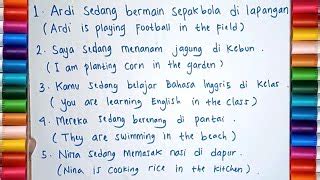 1. Ardi sedang bermain sepakbola di lapangan
(Ardi is playing Football in the field)
2. Saya sedang menanam jagung di kebun.
(I am planting corn in the garden)
3. Kamu sedang belajar Bahasa Inggris di kelas.
(you are learning English in the class)
4. Mereka sedang berenang di pantai.
(They are swimming in the beach)
5. Nina sedang memasak nasi di dapur.
(Nina is cooking rice in the kitchen).